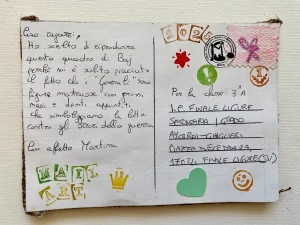 Ciao ragazzi,
Ho scelto di riprodurre
questo quadro di Baj
perché mi è subito piaciuto
il fatto che i "Generali" sono
figure mostruose con grossi
nasi e denti appuntiti,
che simboleggiano la lotta
contro gli orrori della guerra.
Con affetto Martina
MAIL
ART
2025
Per la classe 3ªA
I.C. FINALE LIGURE
SECONDARIA I GRADO
PIAZZA
17024 FINALE LIGURE (SV)